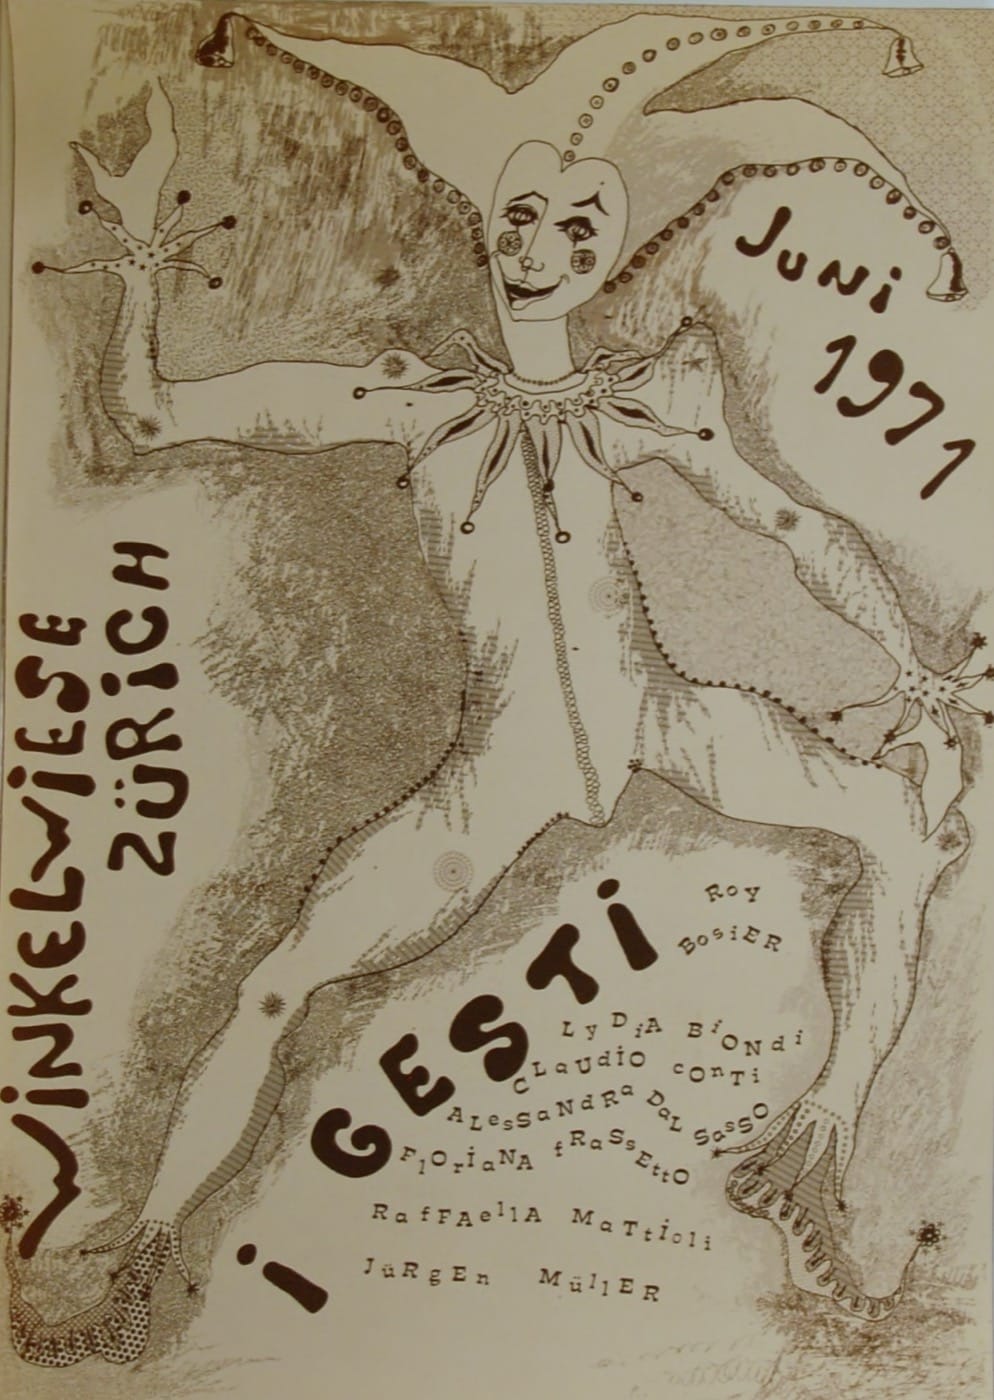 JuNi
1971
WiNKELWiESE
ZÜRiCH
i GESTi
RoY
BosiER
LyDiA BiONdi
CLaUdiO cOnTi
ALesSaNdRa DaL SasSO
FlOriaNA fRaSsEttO
RafFAellA MaTtioli
JüRgEn MüllER